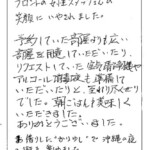 フロントの女性スタッフさんの
笑顔にいやされました。
予約していた部屋よりも広い
部屋を用意していただいたり、
リクエストしていた空気清浄機や
アルコール消毒液も準備して
いただいたりと、至れり尽くせり
でした。朝ごはんも美味しく
いただきました。
ありがとうございます。
お借りした"かりゆし"で沖縄の夜